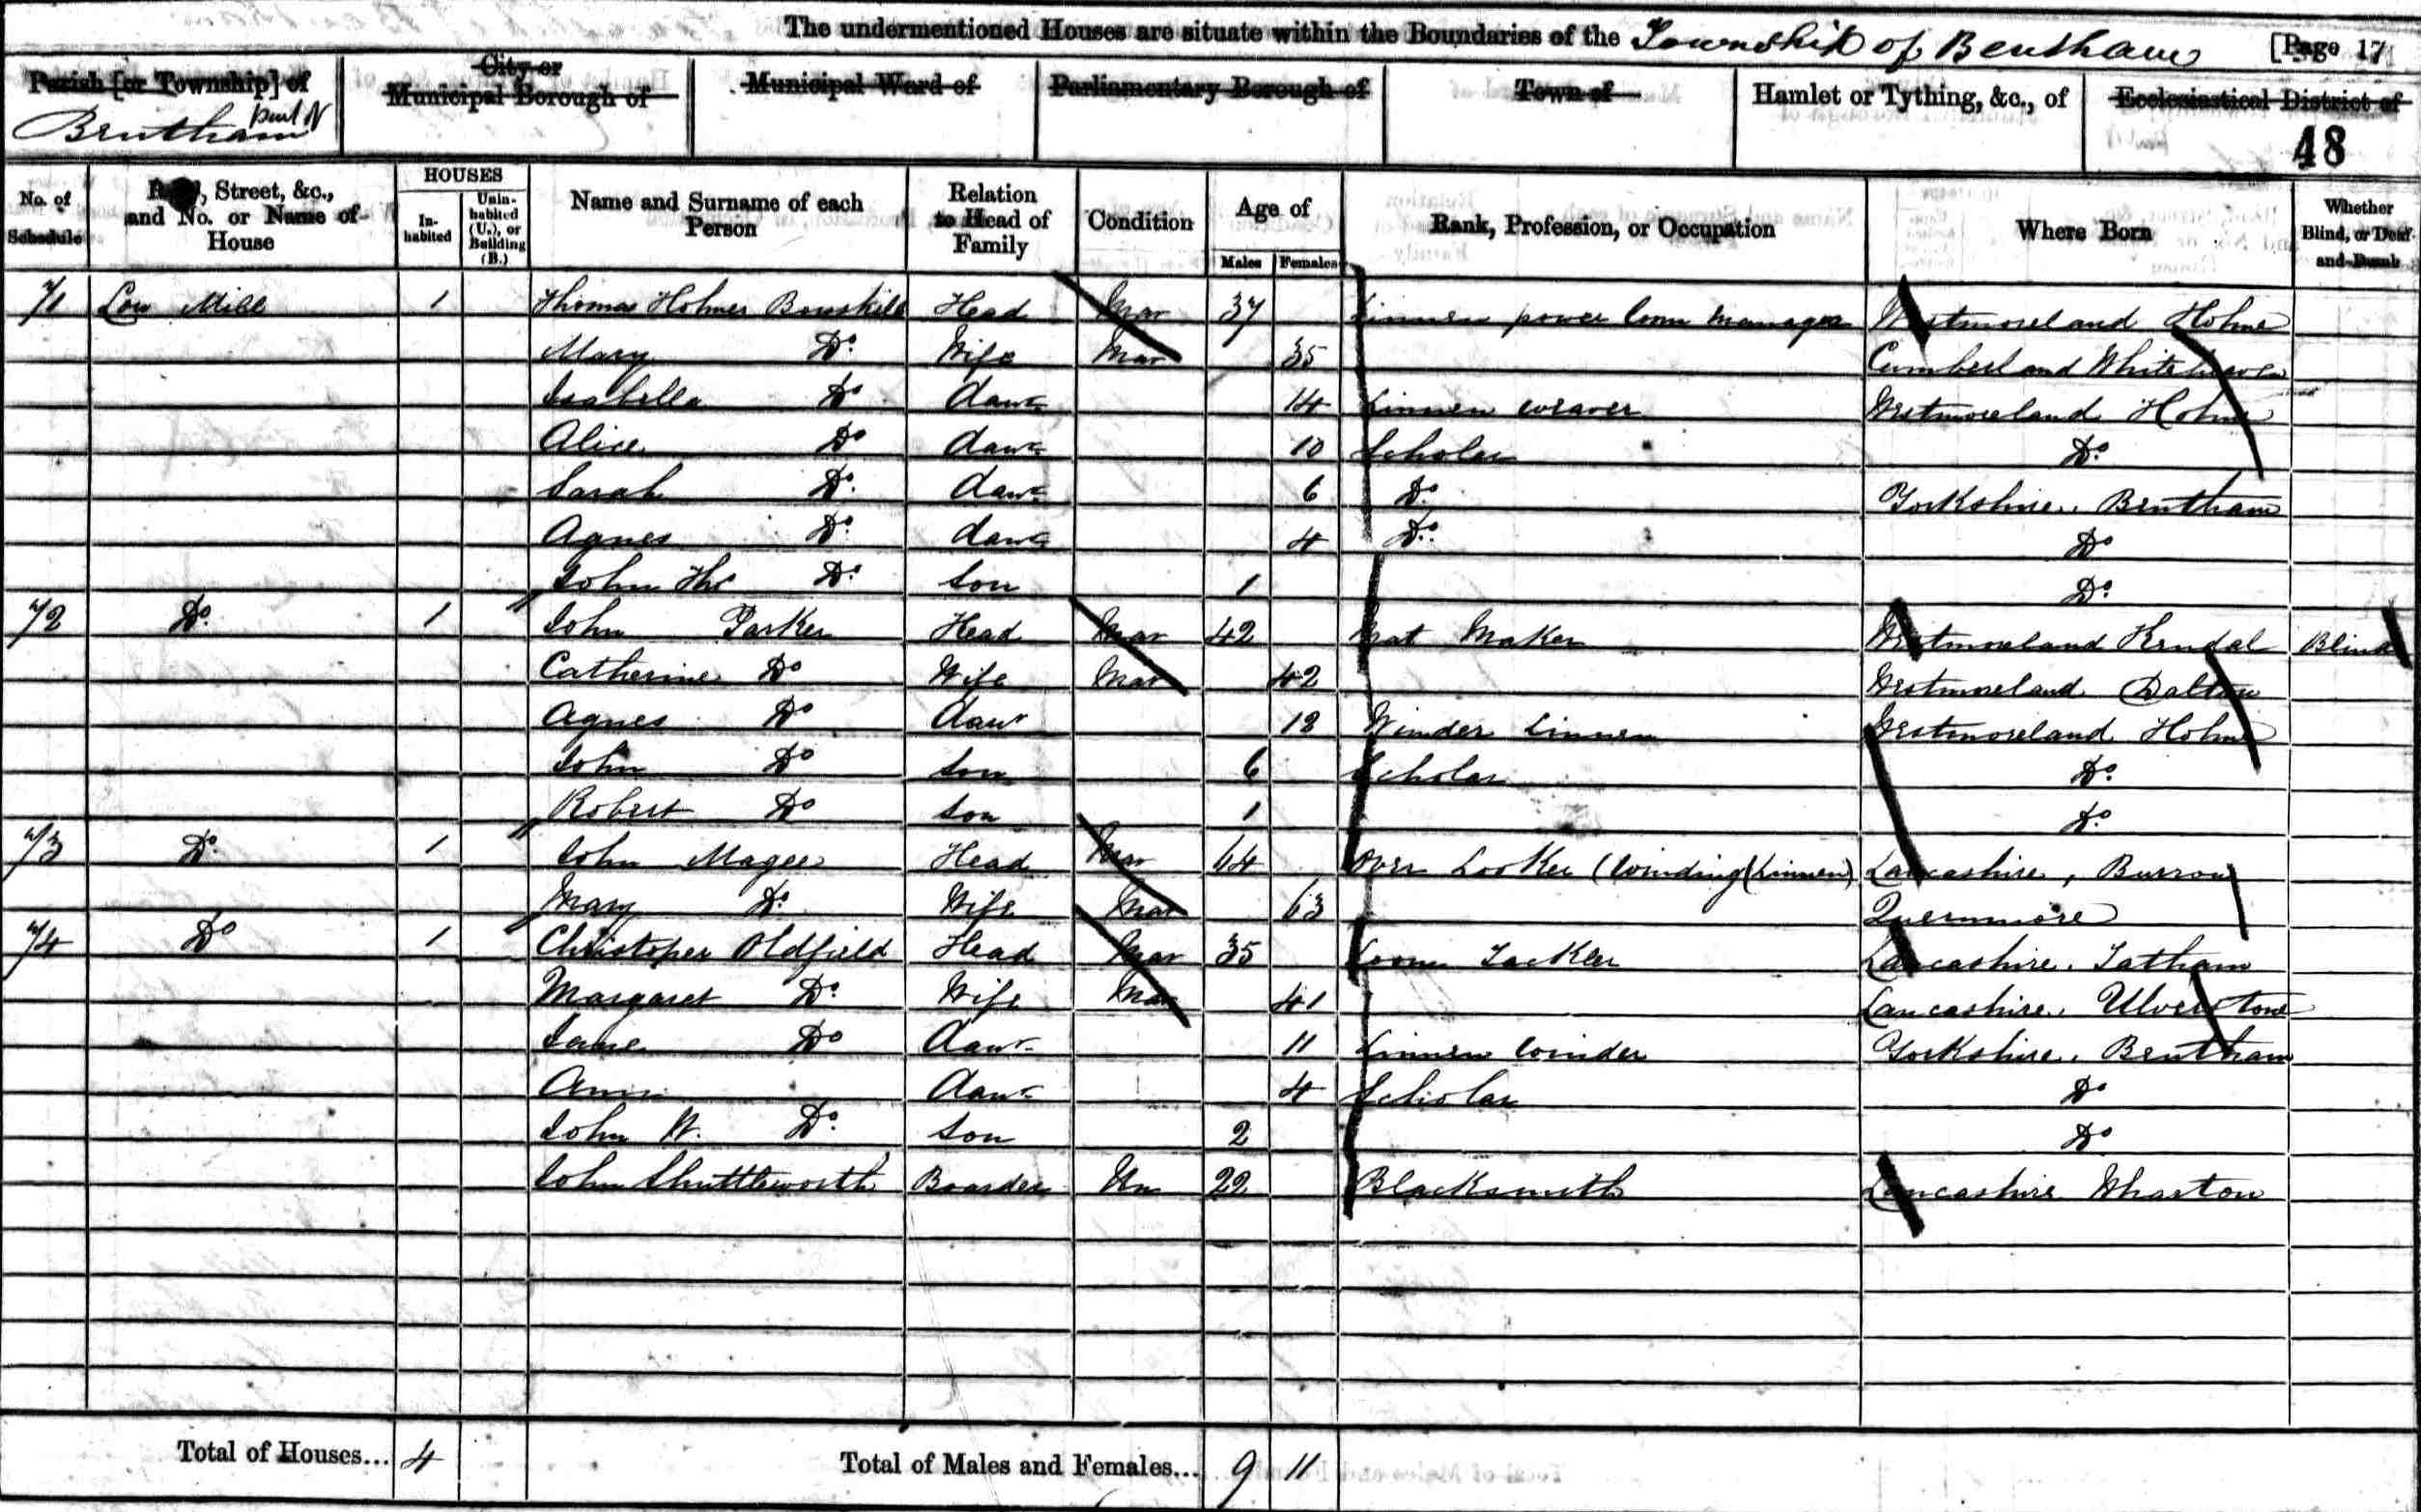 The undermentioned Houses are situate within the Boundaries of the Township of Bentham [Page 17
Parish [or Township] of Bentham part of
City or Municipal Borough of
Municipal Ward of
Parliamentary Borough of
Town of
Hamlet or Tything, &c., of
Ecclesiastical District of
48
No. of Schedule
Street, &c., and No. or Name of House
HOUSES
In-habited
Unin-habited (U.), or Building (B.)
Name and Surname of each Person
Relation to Head of Family
Condition
Age of
Males Females
Rank, Profession, or Occupation
Where Born
Whether Blind, or Deaf-and-Dumb
71 Low Mill 1 Thomas Holmes Bouskill Head Mar 37 Linnen power loom Manager Westmoreland Holme
Mary Do. Wife Mar 35 Cumberland Whitehaven
Isabella Do dawr 14 Linnen weaver Westmoreland Holme
Alice Do dawr 10 Scholar Do.
Sarah Do. dawr 6 Do. Yorkshire. Bentham
Agnes Do. dawr 4 Do. Do
John Thos Do. son 1 Do.
72 Do. 1 John Parker Head Mar 42 Mat Maker Westmoreland Kendal Blind
Catherine Do Wife Mar 42 Westmoreland Dalton
Agnes Do dawr 18 Winder Linnen Westmoreland Holme
John Do son 6 Scholar Do.
Robert Do son 1 Do.
73 Do. 1 John Magee Head Mar 64 Over Looker (Winding (Linnen) Lancashire, Burrow
Mary Do. Wife Mar 63 Quernmore
74 Do 1 Christoper Oldfield Head Mar 35 Loom Tackler Lancashire. Tatham
Margaret Do. Wife Mar 41 Lancashire. Ulverstone
Jane Do dawr 11 Linnen winder Yorkshire. Bentham
Ann dawr 4 Scholar Do
John W. Do. son 2 Do
John Shuttleworth Boarder Un 22 Blacksmith Lancashire Wharton
Total of Houses... 4
Total of Males and Females... 9 11